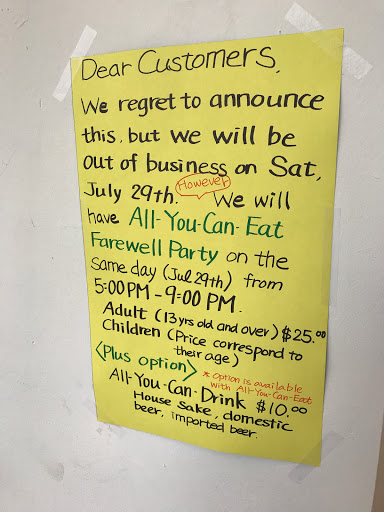 Dear Customers,
We regret to announce
this, but we will be
out of business on Sat,
July 29th. However We will
have All-You-Can-Eat
Farewell Party on the
same day (Jul 29th) from
5:00 PM - 9:00 PM.
Adult (13 yrs old and over) $25.00
Children (Price correspond to
their age)
<Plus option> * Option is available
with All-You-Can-Eat
All-You-Can-Drink $10.00
House Sake, domestic
beer, imported beer.